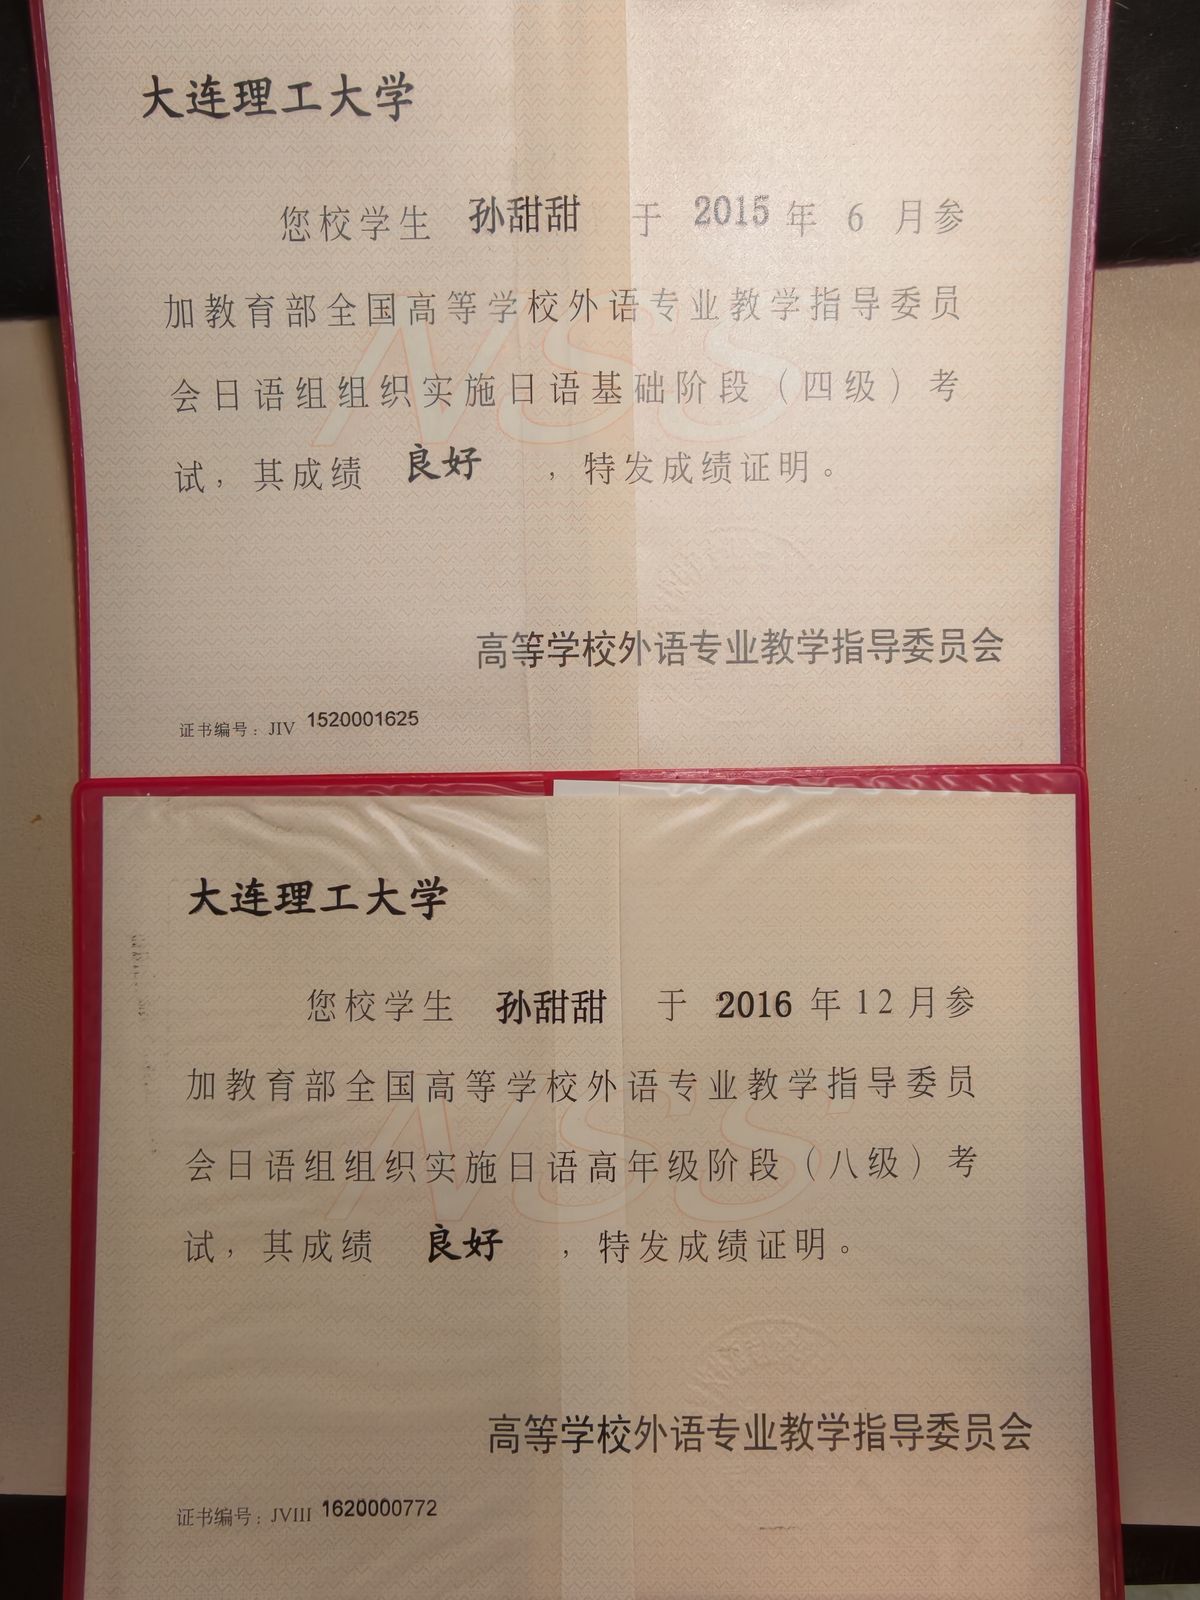 大连理工大学
您校学生 孙甜甜 于 2015 年 6 月参
加教育部全国高等学校外语专业教学指导委员
会日语组组织实施日语基础阶段（四级）考
试，其成绩 良好 ，特发成绩证明。
高等学校外语专业教学指导委员会
证书编号：JIV 1520001625
大连理工大学
您校学生 孙甜甜 于 2016 年 12 月参
加教育部全国高等学校外语专业教学指导委员
会日语组组织实施日语高年级阶段（八级）考
试，其成绩 良好 ，特发成绩证明。
高等学校外语专业教学指导委员会
证书编号：JVIII 1620000772